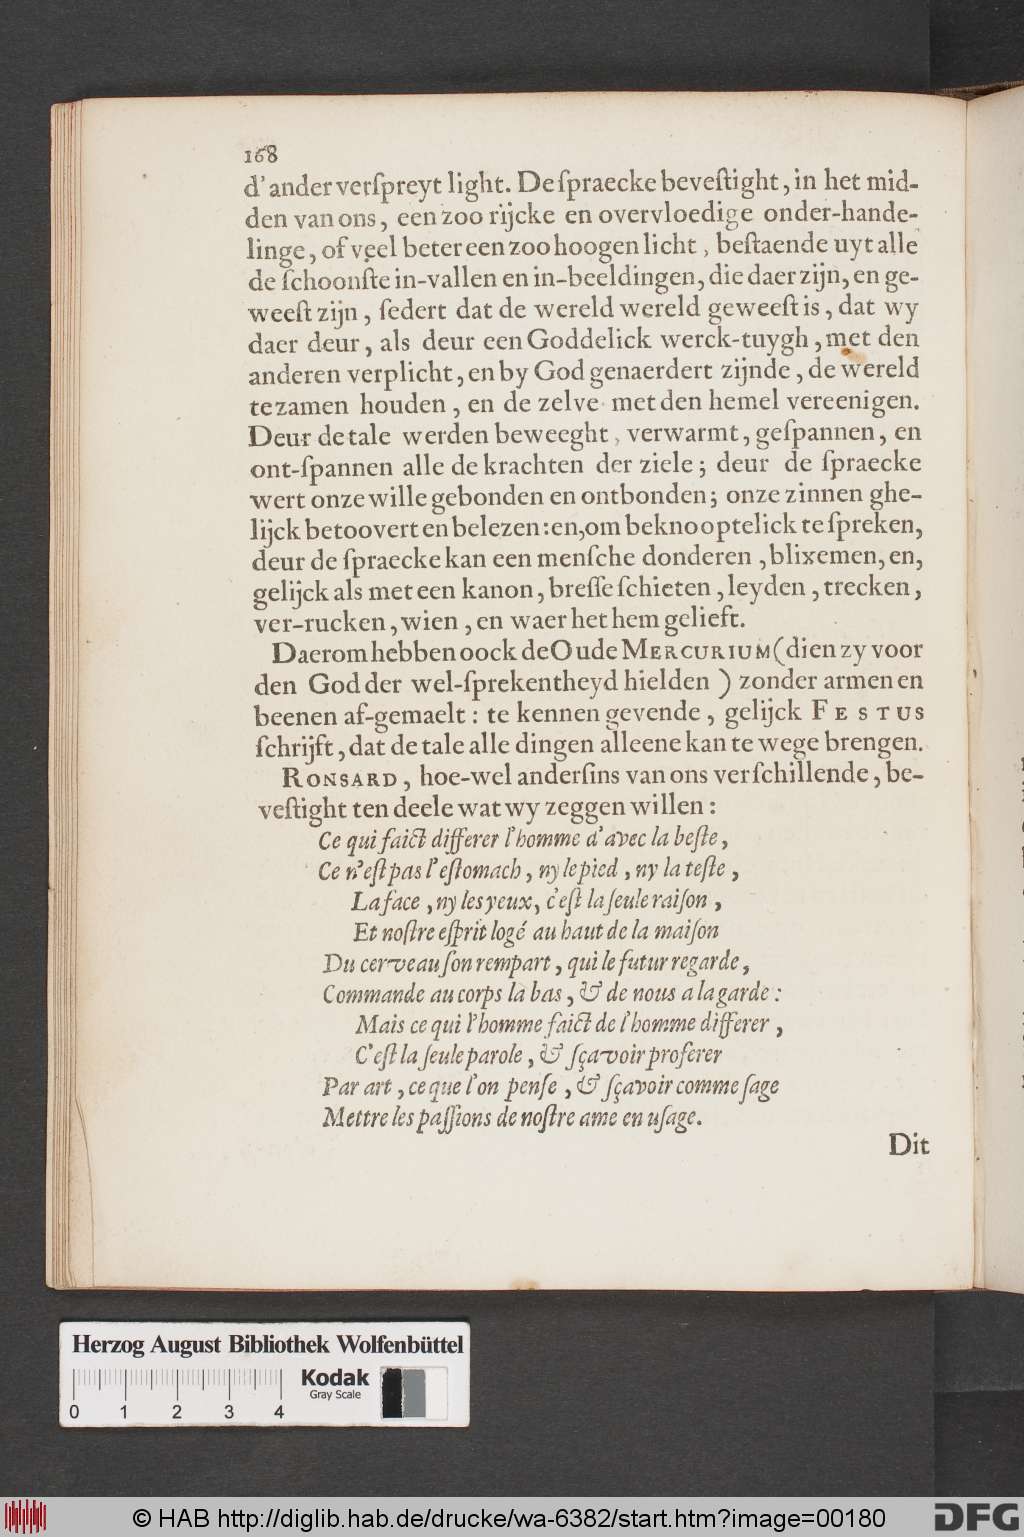 168
d'ander verſpreyt light. De ſpraecke beveſtight, in het mid-
den van ons, een zoo rijcke en overvloedige onder-hande-
linge, of veel beter een zoo hoogen licht, beſtaende uyt alle
de ſchoonſte in-vallen en in-beeldingen, die daer zijn, en ge-
weeſt zijn, ſedert dat de wereld wereld geweeſt is, dat wy
daer deur, als deur een Goddelick werck-tuygh, met den
anderen verplicht, en by God genaerdert zijnde, de wereld
te zamen houden, en de zelve met den hemel vereenigen.
Deur de tale werden beweeght, verwarmt, geſpannen, en
ont-ſpannen alle de krachten der ziele; deur de ſpraecke
wert onze wille gebonden en ontbonden; onze zinnen ghe-
lijck betoovert en belezen: en, om beknooptelick te ſpreken,
deur de ſpraecke kan een menſche donderen, blixemen, en,
gelijck als met een kanon, breſſe ſchieten, leyden, trecken,
ver-rucken, wien, en waer het hem gelieft.
Daerom hebben oock de Oude MERCURIUM (dien zy voor
den God der wel-ſprekentheyd hielden) zonder armen en
beenen af-gemaelt: te kennen gevende, gelijck FESTUS
ſchrijft, dat de tale alle dingen alleene kan te wege brengen.
RONSARD, hoe-wel anderſins van ons verſchillende, be-
veſtight ten deele wat wy zeggen willen:
Ce qui faict differer l'homme d'avec la beſte,
Ce n'eſt pas l'eſtomach, ny le pied, ny la teſte,
La face, ny les yeux, c'eſt la ſeule raiſon,
Et noſtre eſprit logé au haut de la maiſon
Du cerveau ſon rempart, qui le futur regarde,
Commande au corps la bas, & de nous a la garde:
Mais ce qui l'homme faict de l'homme differer,
C'eſt la ſeule parole, & ſçavoir proferer
Par art, ce que l'on penſe, & ſçavoir comme ſage
Mettre les paſſions de noſtre ame en uſage.
Dit
Herzog August Bibliothek Wolfenbüttel
Kodak
Gray Scale
0 1 2 3 4
© HAB http://diglib.hab.de/drucke/wa-6382/start.htm?image=00180
DFG